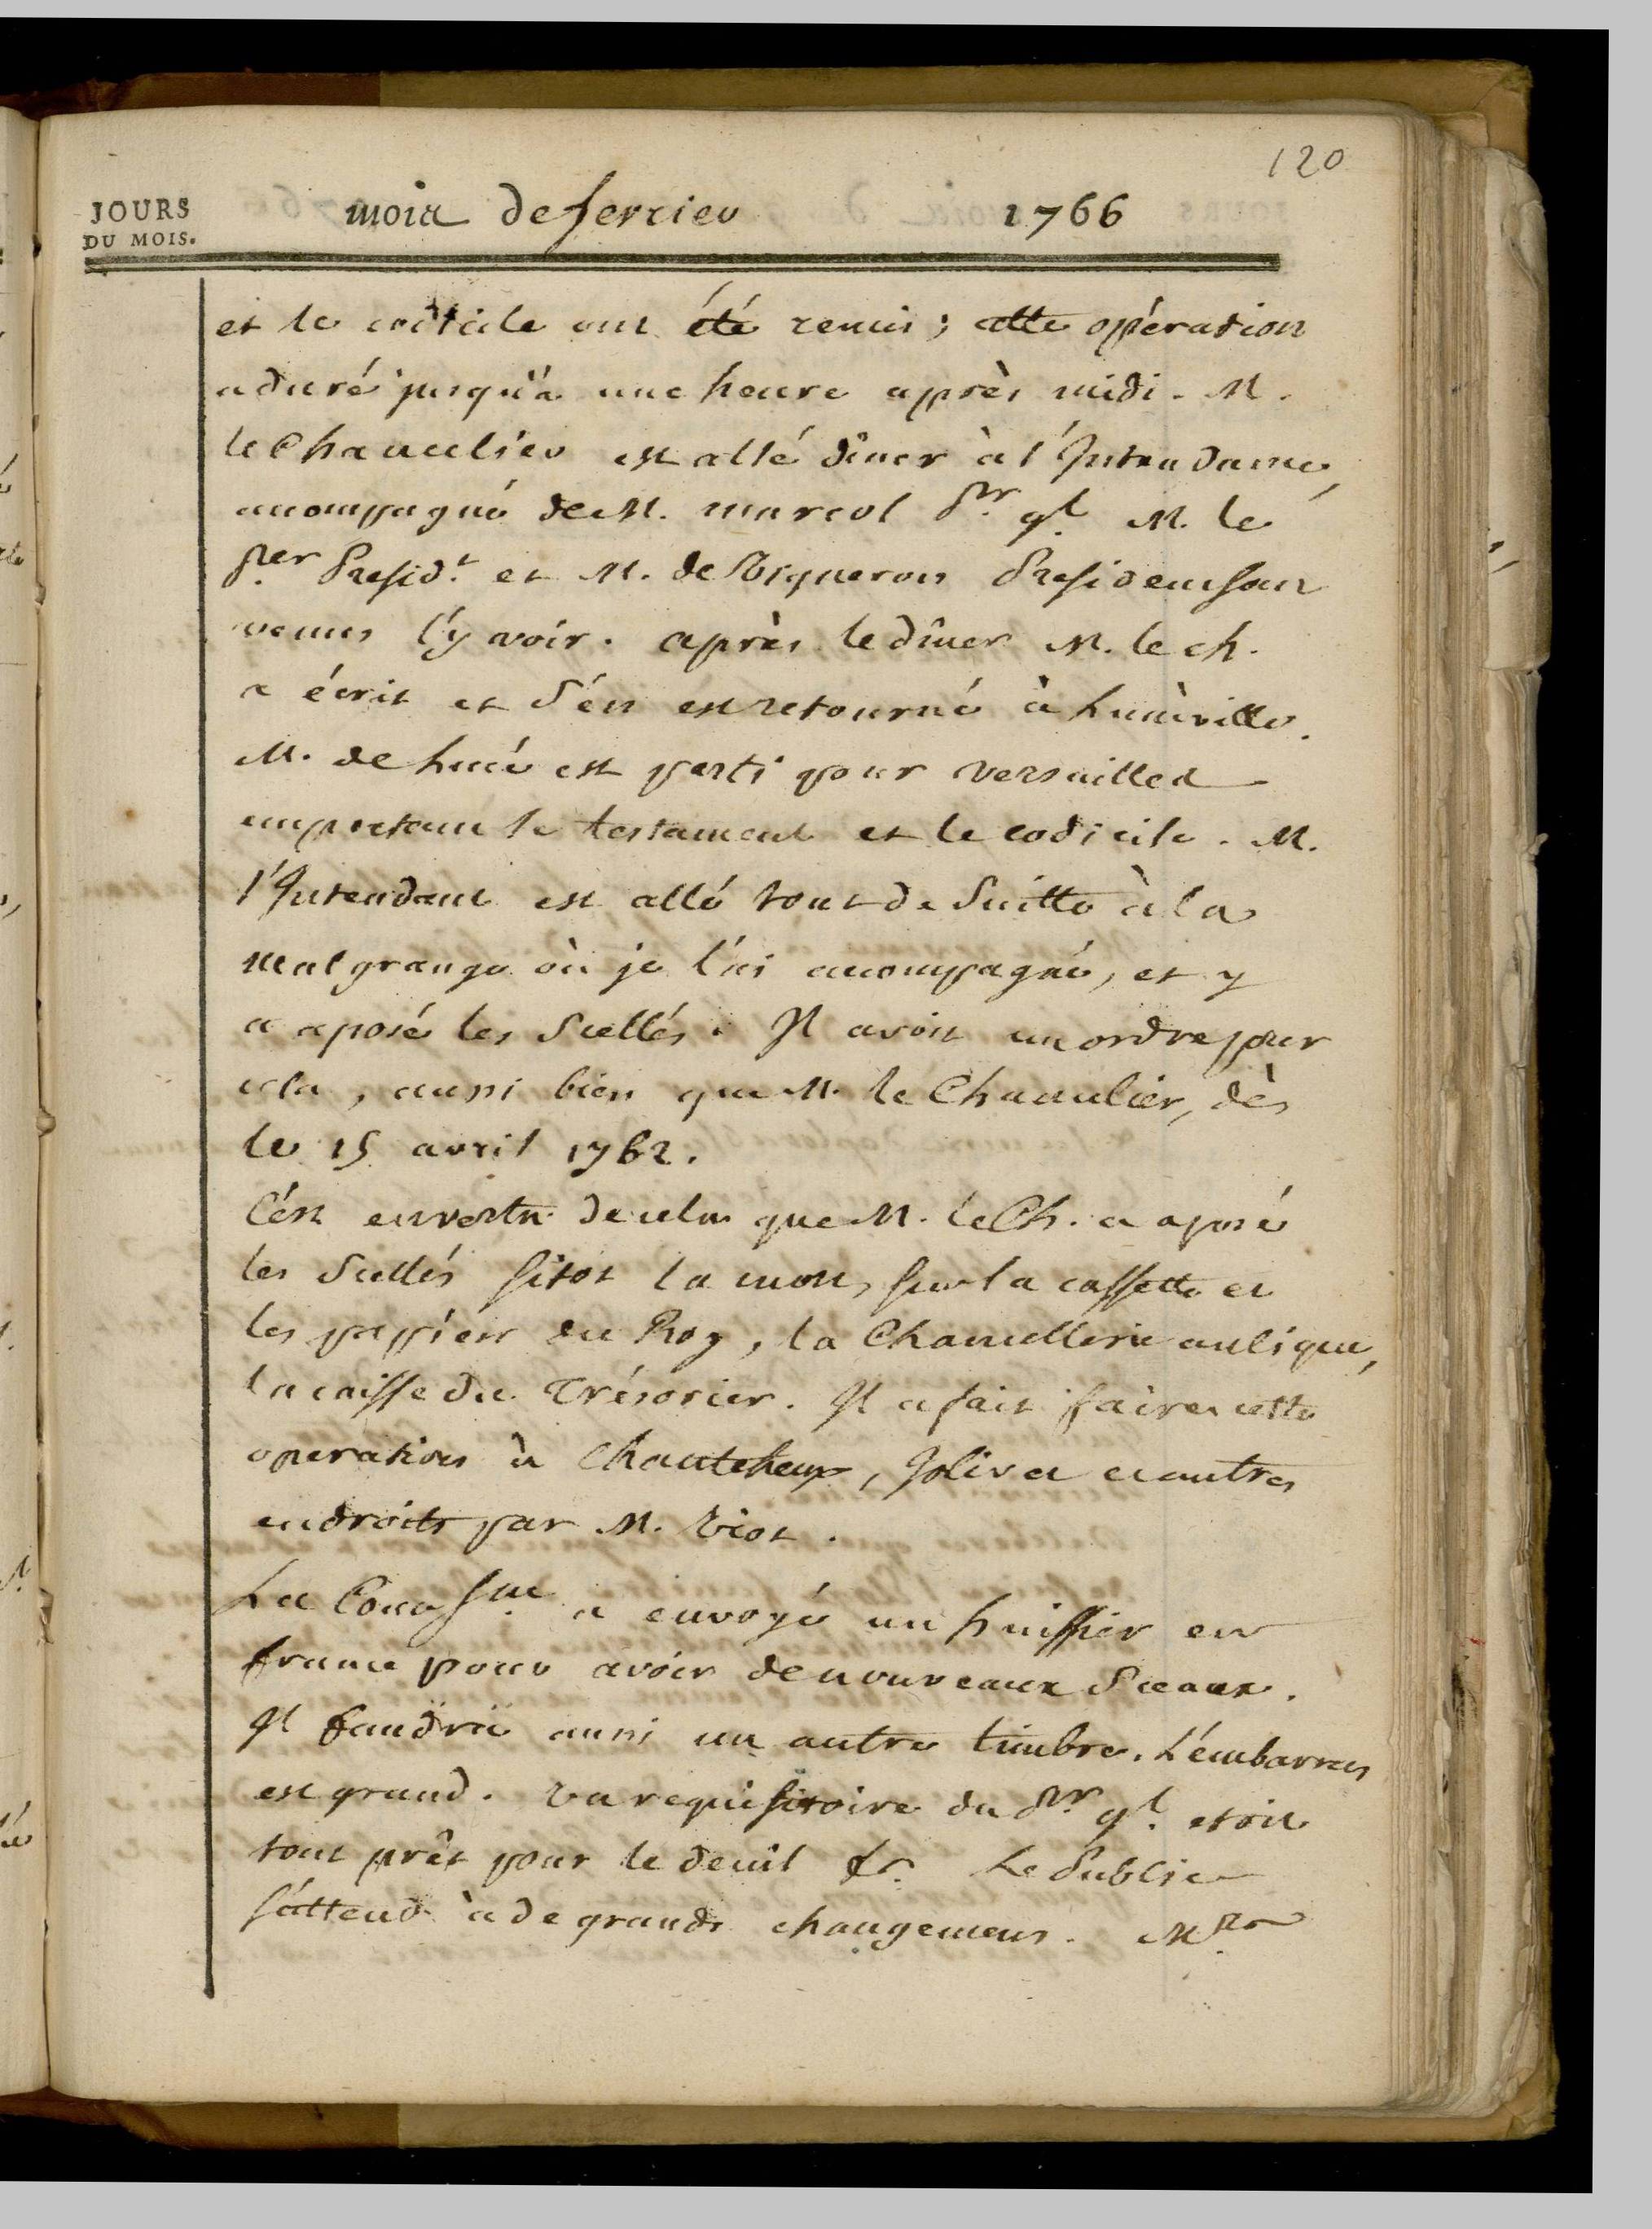 120
JOURS
DU MOIS.
mois de fevrier 1766
et le codicile ont été remis; cette opération
a duré jusqu'à une heure après midi. M.
le Chancelier est allé dîner à l'Intendance,
acompagné de M. marcol Pr. gl. M. le
Per Presidt. et M. de Vigneron President sont
venus l'y voir. après le dîner M. le ch.
a écrit et s'en est retourné à Lunéville.
M. de Lucé est parti pour versailles
emportant le testament et le codicile. M.
l'Intendant est allé tout de suitte à la
malgrange où je l'ai acompagné, et y
a aposé les scellés. Il avoit un ordre pour
cela, aussi bien que M. le Chancelier, dès
le 15 avril 1762.
C'est en vertu de cela que M. le Ch. a aposé
les scellés sitot la mort, sur la cassette et
les papiers du Roy, la Chancellerie aulique,
la caisse du Trésorier. Il a fait faire cette
operation à Chanteheux, Joliver et autres
endroits par M. Viot.
La Cour Sne. a envoyé un huissier en
france pour avoir de nouveaux sceaux.
Il faudra aussi un autre timbre. L'embarras
est grand. Un requisitoire du Pr. gl. etoit
tout prêt pour le deuil &c. Le Public
s'attend à de grands changemens. Mrs.